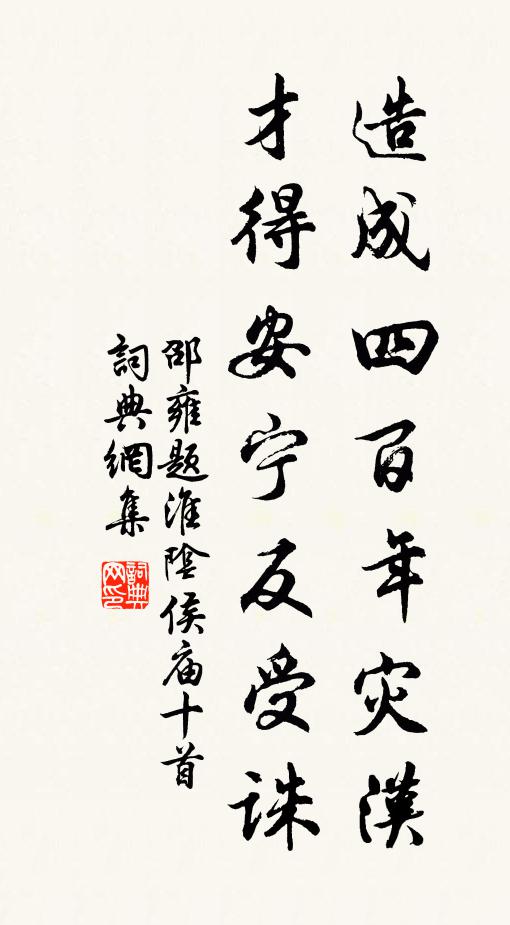 造成四百年灾漢
才得安宁反受诛
邵雍题淮陰侯庙十首
詞典網集
詞典
网印